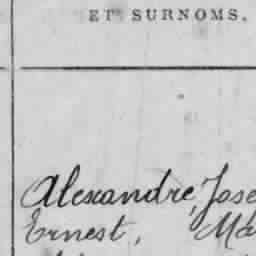 ET SURNOMS.
Alexandre, Jose
Ernest, Ma